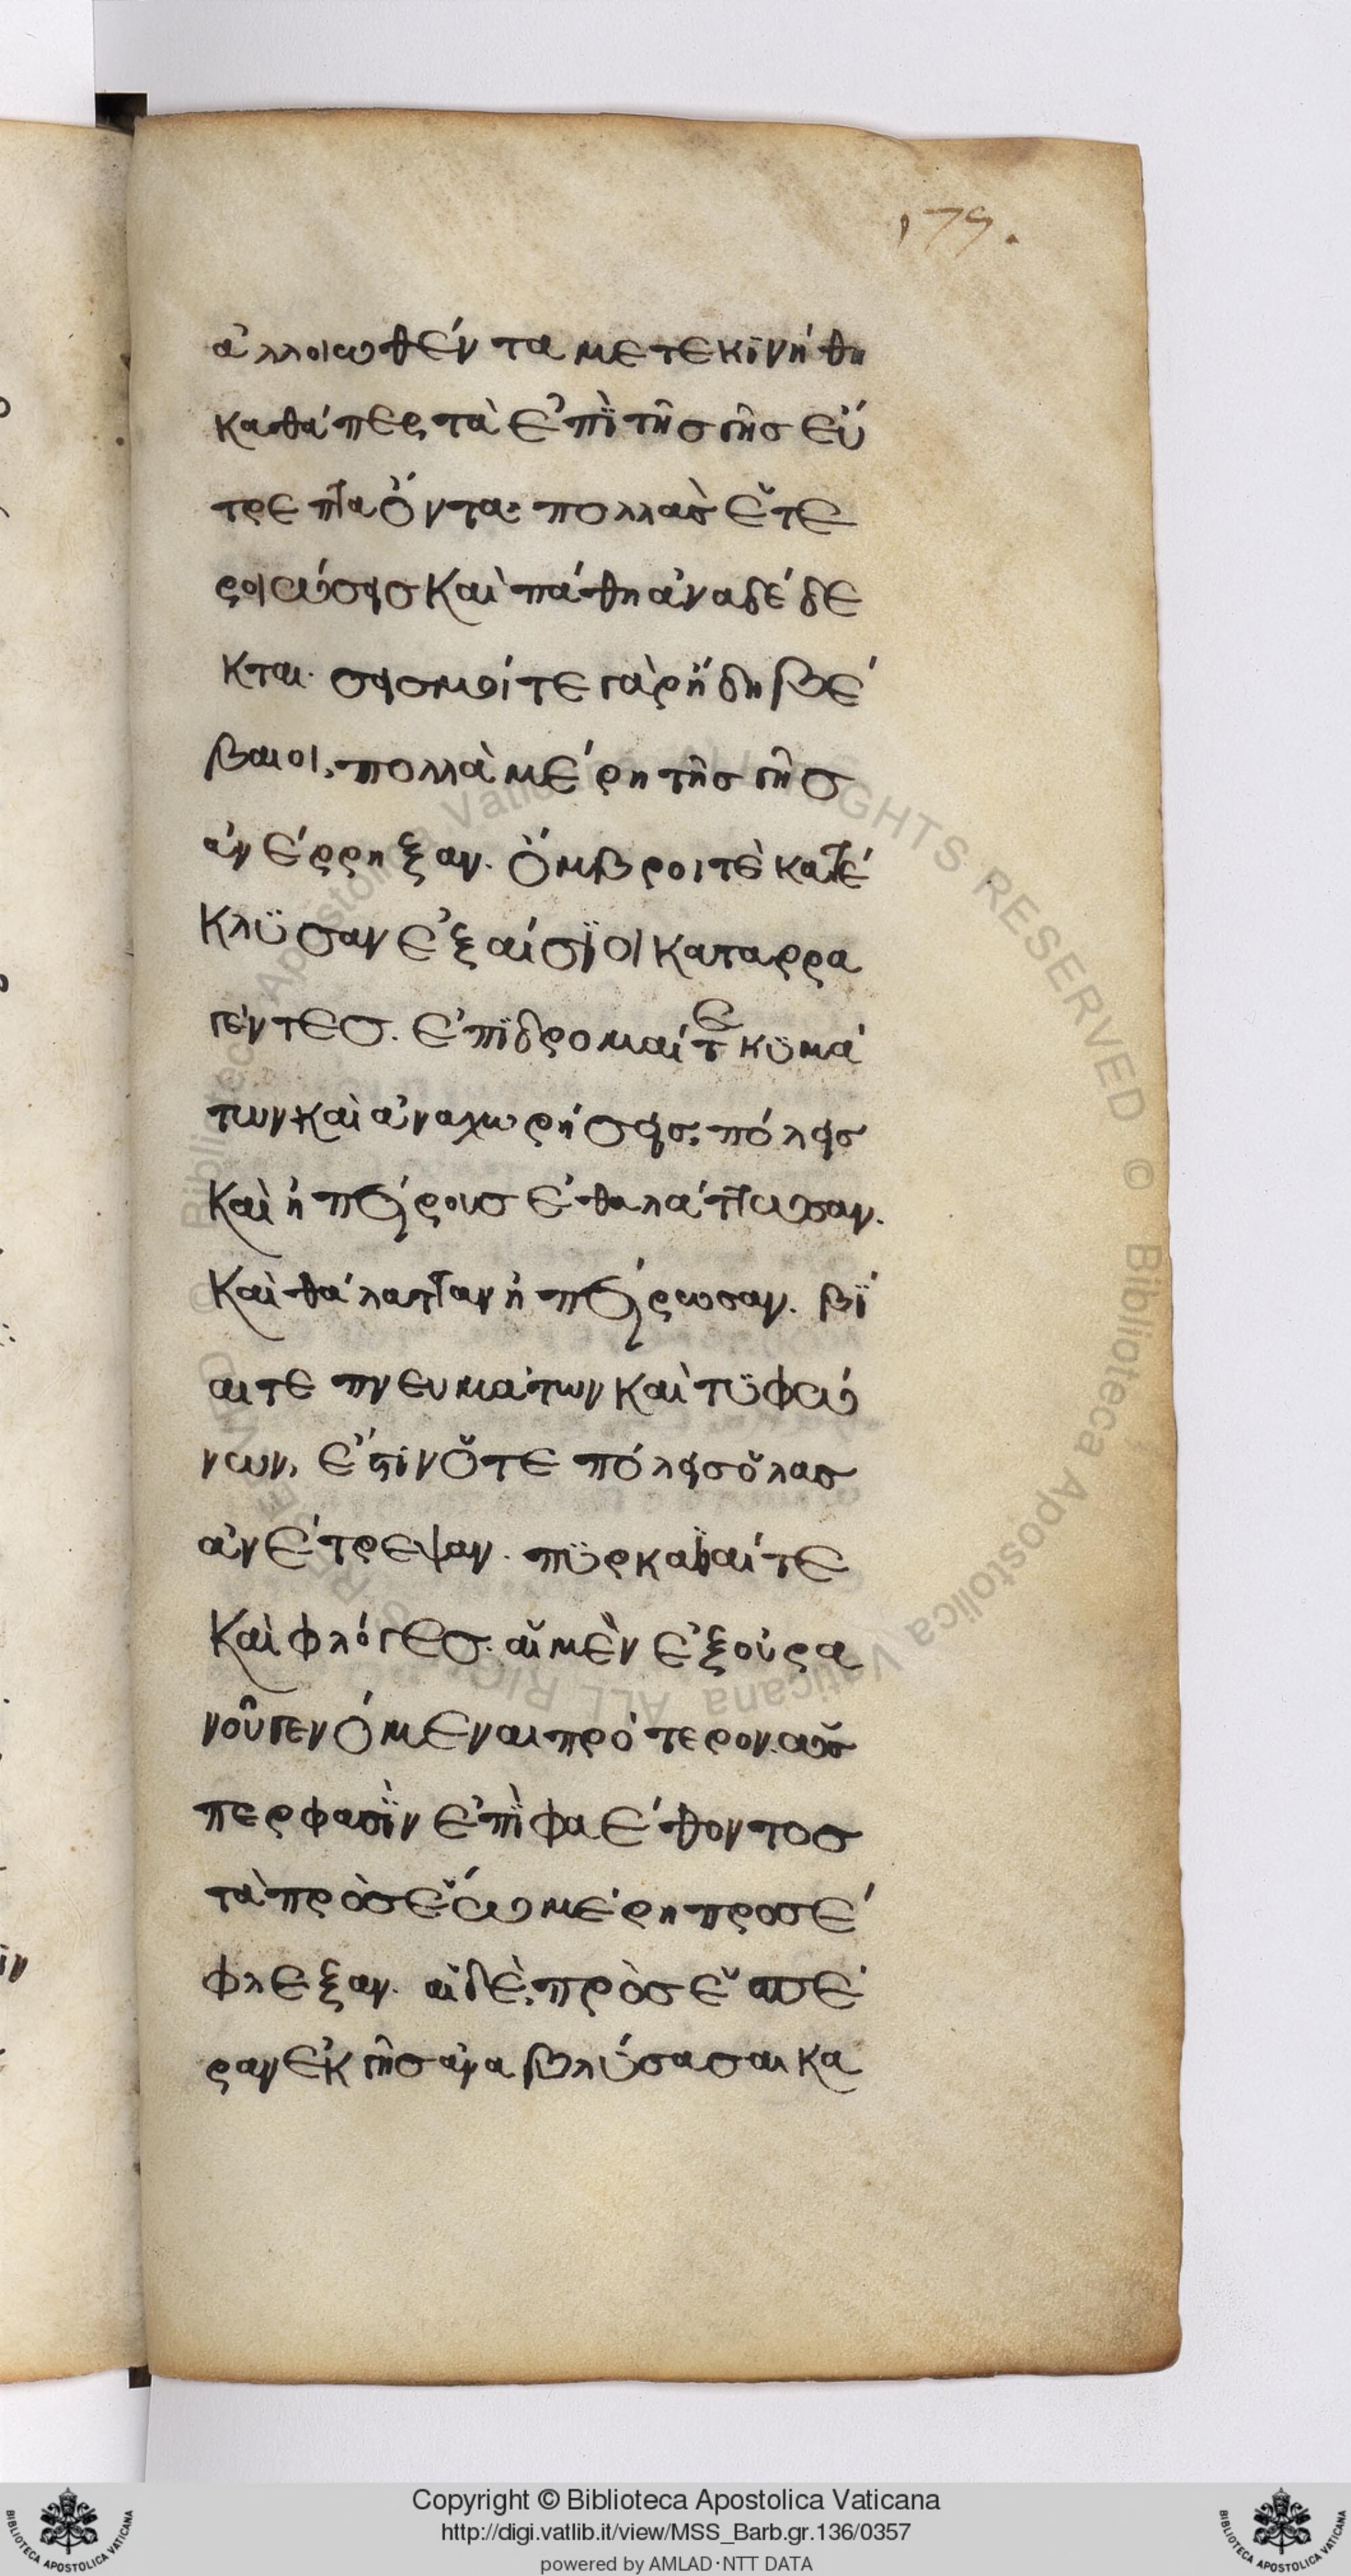 179.
ἀλλοιωθέντα μετεκϊνήθη
καθάπερ τὰ ἐπῒ τῆσ γῆσ εὐ
τρεπῆ ὄντα· πολλὰσ ἑτε
ροιώσεισ καὶ πάθη ἀναδέδε
κται. σεισμοί τε γὰρ ἤδη βέ
βαιοι, πολλὰ μέρη τῆσ γῆσ
ἀνέρρηξαν. ὄμβροι τὲ κατέ
κλϋσαν ἐξαίσϊοι καταρρα
γέντεσ. ἐπϊδρομαί τε κϋμά
των καὶ ἀναχωρήσεισ. πόλεισ
καὶ ἠπείρουσ ἐθαλάττωσαν.
καὶ θάλατταν ἠπείρωσαν. βΐ
αι τε πνευμάτων καὶ τϋφώ
νων, ἔστϊν ὅτε πόλεισ ὅλασ
ἀνέτρεψαν. πϋρκαϊαί τε
καὶ φλόγεσ. αἱ μὲν ἐξ οὐρα
νοῦ γενόμεναι πρότερον. ὥσ
περ φασῒν ἐπῒ φαέθοντοσ
τὰ πρὸσ ἕω μέρη προσέ
φλεξαν. αἱ δὲ, πρὸσ ἑσπέ
ραν ἐκ γῆσ ἀναβλύσασαι κα
Copyright © Biblioteca Apostolica Vaticana
http://digi.vatlib.it/view/MSS_Barb.gr.136/0357
powered by AMLAD·NTT DATA